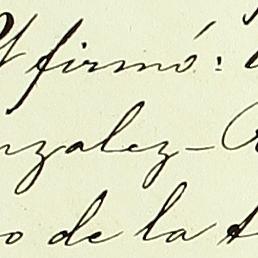 Y firmó:
nzalez-
o de la